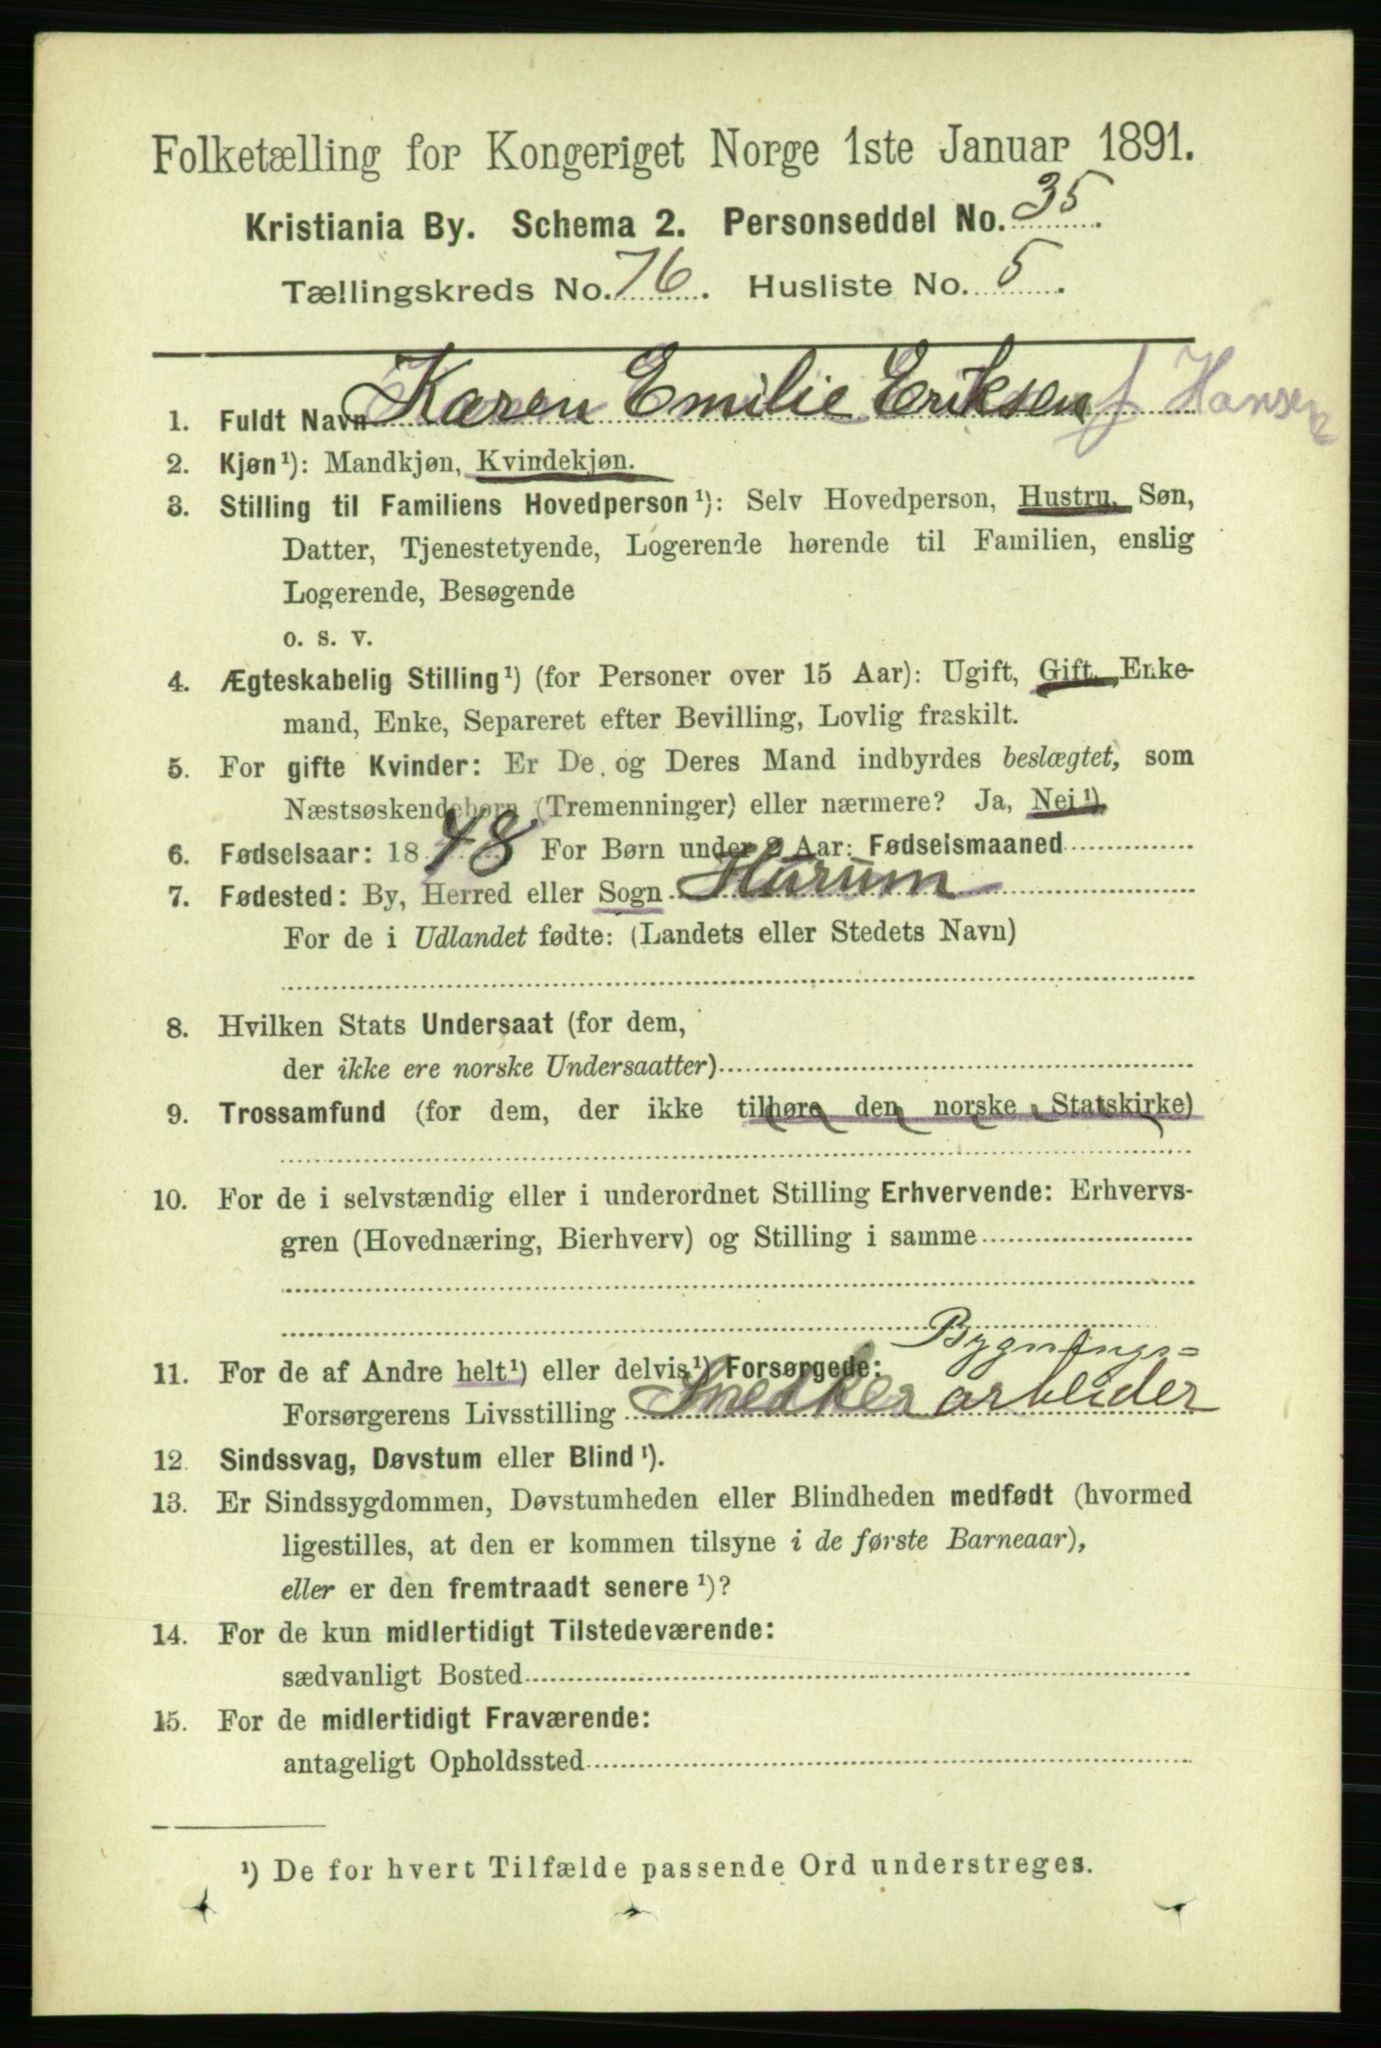 Folketælling for Kongeriget Norge 1ste Januar 1891.
Kristiania By. Schema 2. Personseddel No. 35.
Tællingskreds No. 76. Husliste No. 5.
1. Fuldt Navn Karen Emilie Eriksen f Hansen
2. Kjøn¹): Mandkjøn, Kvindekjøn.
3. Stilling til Familiens Hovedperson¹): Selv Hovedperson, Hustru, Søn,
Datter, Tjenestetyende, Logerende hørende til Familien, enslig
Logerende, Besøgende
o. s. v.
4. Ægteskabelig Stilling¹) (for Personer over 15 Aar): Ugift, Gift, Enke-
mand, Enke, Separeret efter Bevilling, Lovlig fraskilt.
5. For gifte Kvinder: Er De og Deres Mand indbyrdes beslægtet, som
Næstsøskendebørn (Tremenninger) eller nærmere? Ja, Nei¹)
6. Fødselsaar: 1848 For Børn under 2 Aar: Fødselsmaaned
7. Fødested: By, Herred eller Sogn Hurum
For de i Udlandet fødte: (Landets eller Stedets Navn)
8. Hvilken Stats Undersaat (for dem,
der ikke ere norske Undersaatter)
9. Trossamfund (for dem, der ikke tilhøre den norske Statskirke)
10. For de i selvstændig eller i underordnet Stilling Erhvervende: Erhvervs-
gren (Hovednæring, Bierhverv) og Stilling i samme
Bygnings=
11. For de af Andre helt¹) eller delvis¹) Forsørgede:
Forsørgerens Livsstilling Snedker arbeider
12. Sindssvag, Døvstum eller Blind¹).
13. Er Sindssygdommen, Døvstumheden eller Blindheden medfødt (hvormed
ligestilles, at den er kommen tilsyne i de første Barneaar),
eller er den fremtraadt senere¹)?
14. For de kun midlertidigt Tilstedeværende:
sædvanligt Bosted
15. For de midlertidigt Fraværende:
antageligt Opholdssted
¹) De for hvert Tilfælde passende Ord understreges.